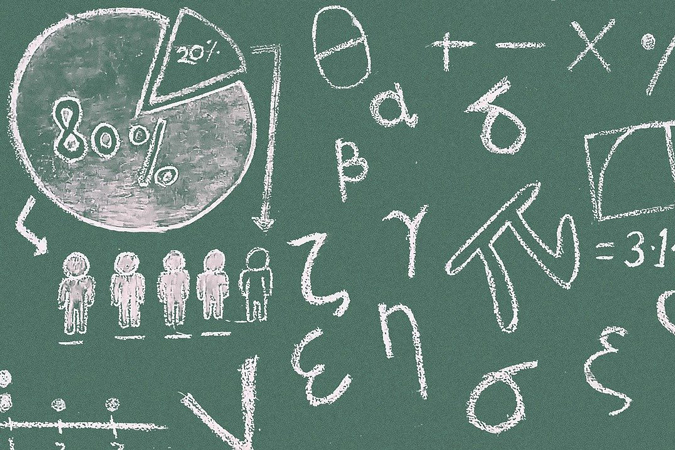 20%
80%
θ
+ − × ·/
α
δ
β
γ
π
= 3·1
ζ
η
ε
σ
ξ